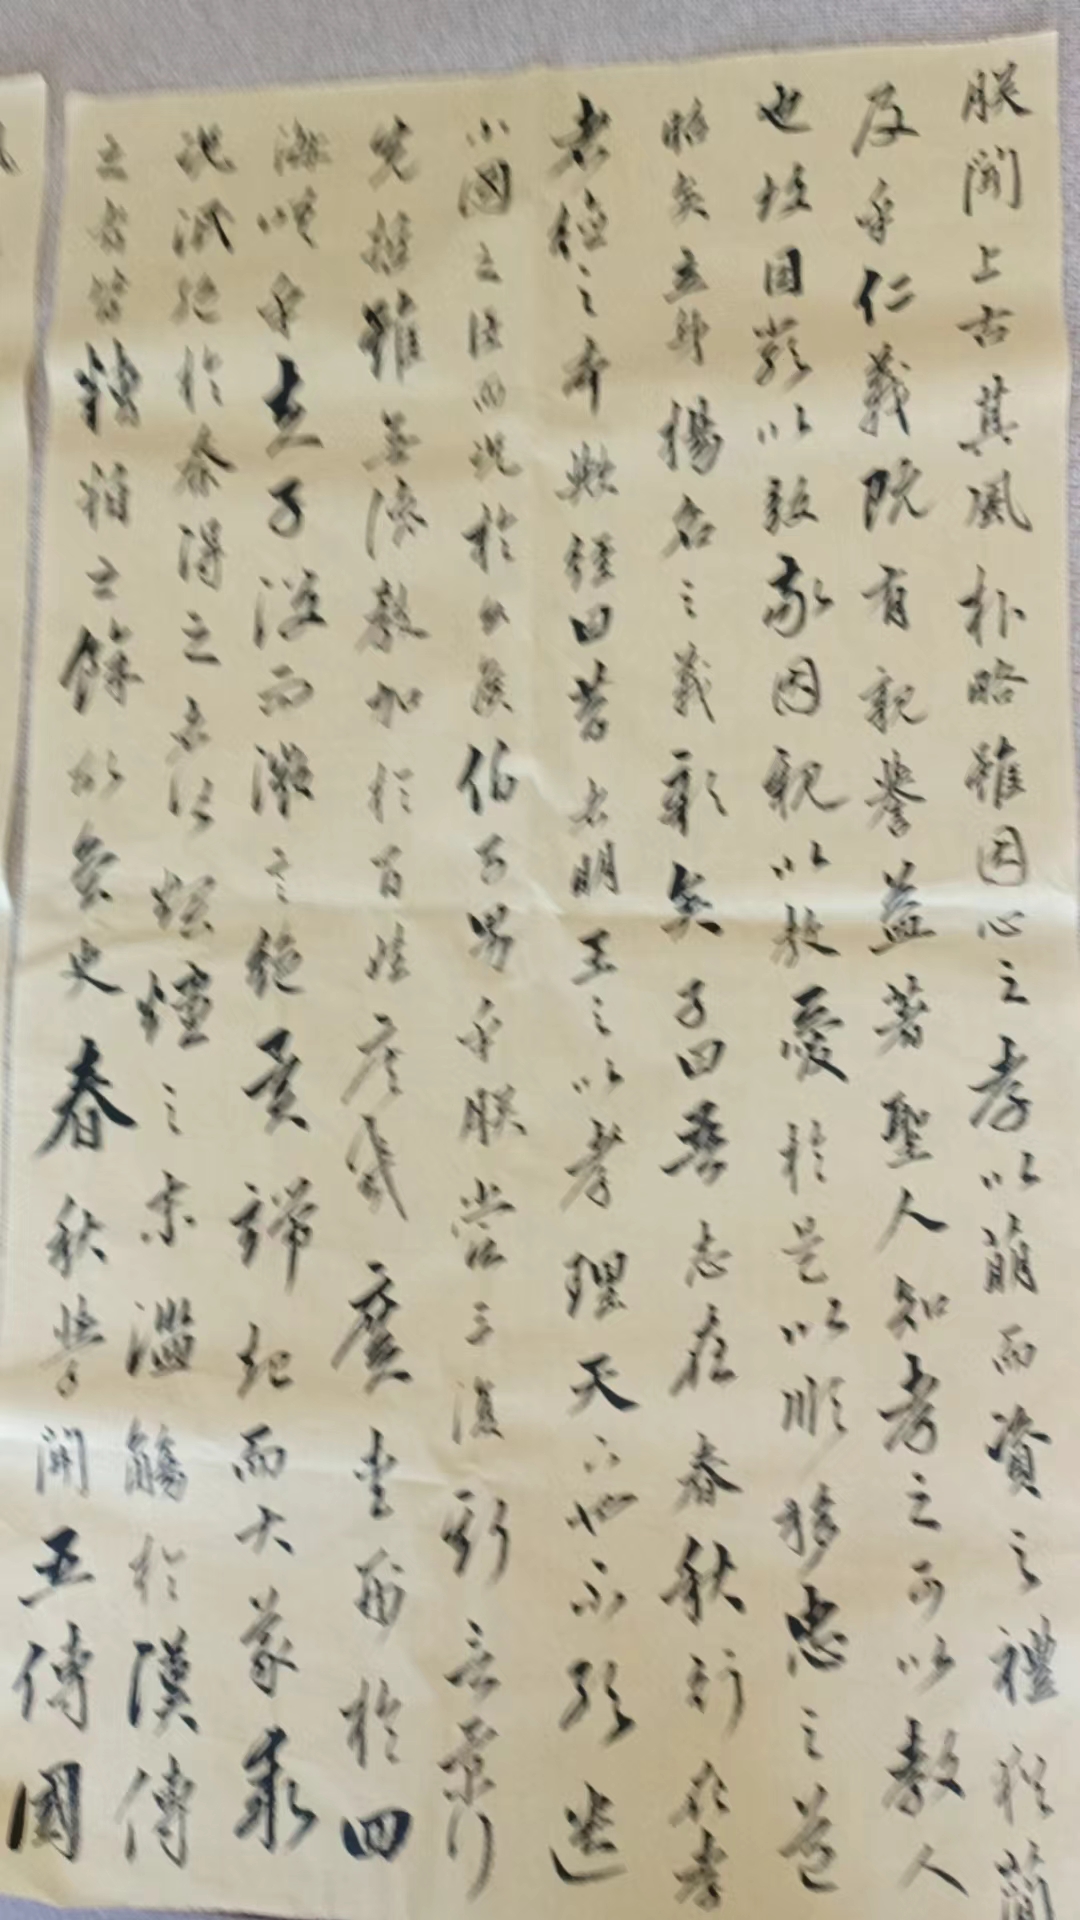 朕聞上古其風朴略雖因心之孝以萌而資之禮猶簡
及乎仁義既有親譽益著聖人知孝之可以教人
也故因嚴以教敬因親以教愛於是以順移忠之道
昭矣立身揚名之義彰矣子曰吾志在春秋行在孝
者德之本歟經曰昔者明王之以孝理天下也不敢遺
小國之臣而況於公侯伯子男乎朕嘗三復斯言景行
先哲雖無德教加於百姓庶幾廣愛形於四
海嗟乎夫子沒而微言絕異端起而大義乖
況泯絕於秦得之者皆煨燼之末濫觴於漢傳
之者皆糟粕之餘故魯史春秋學開五傳國